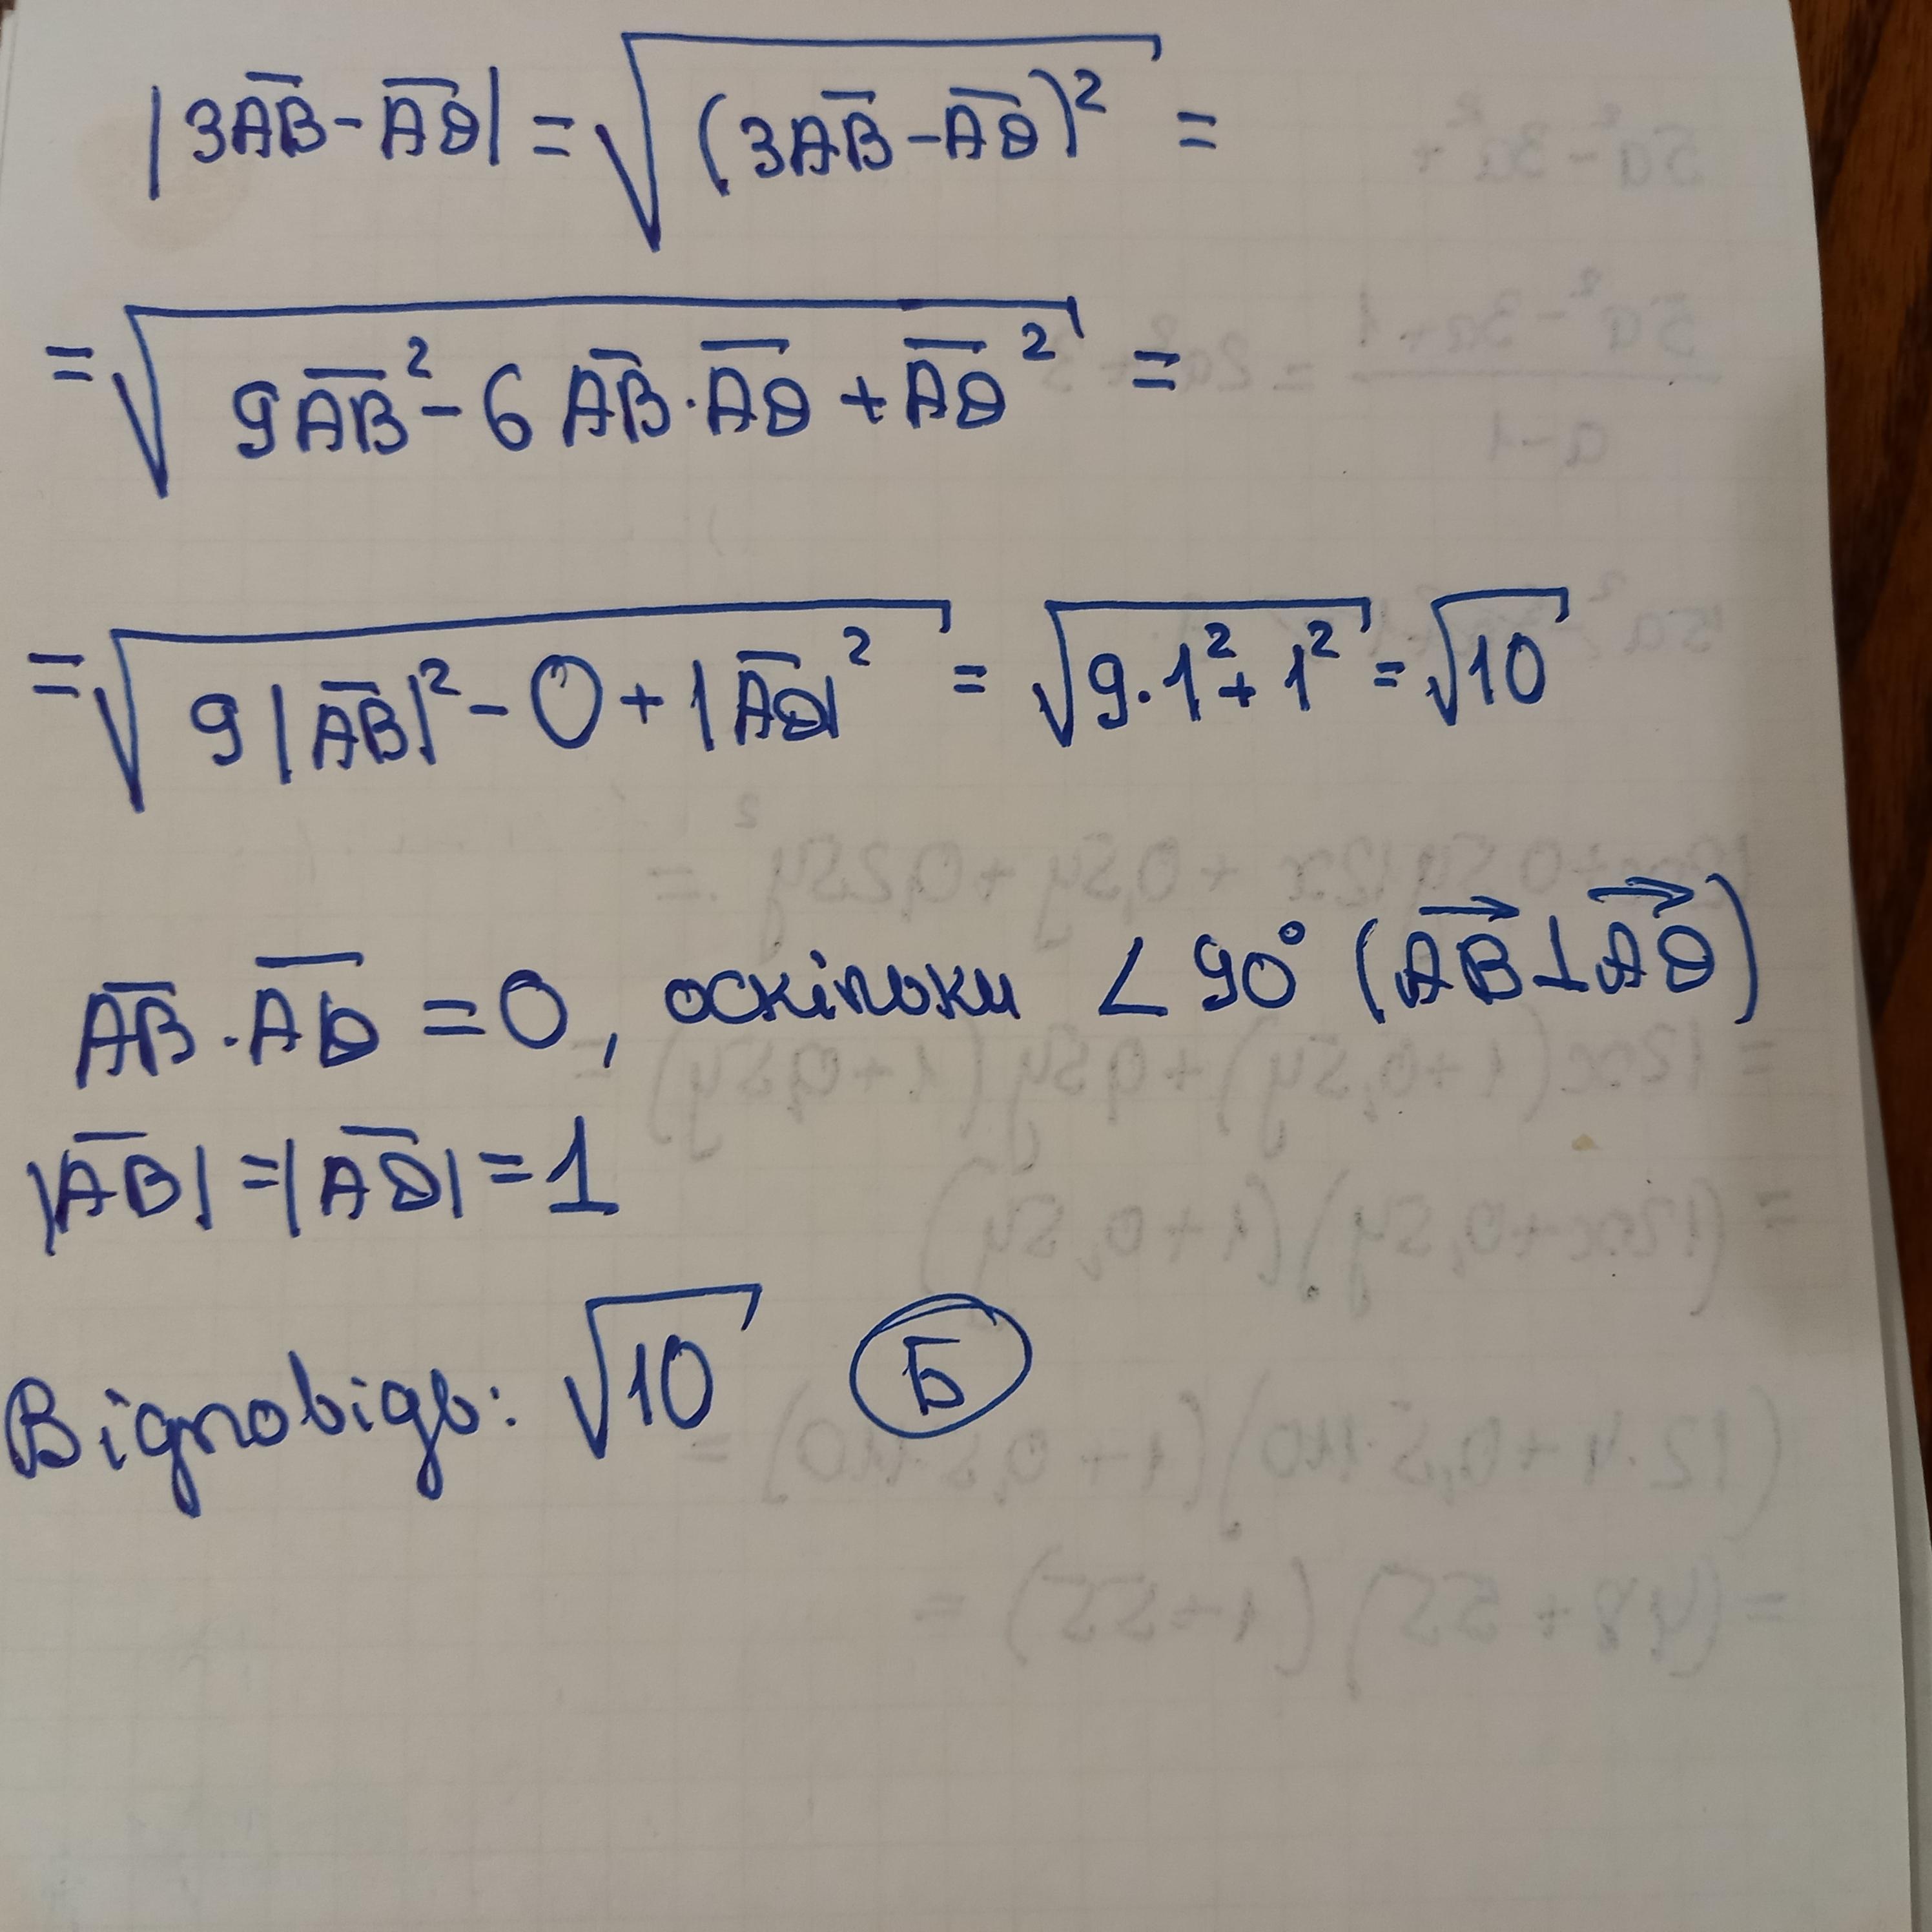 |3A̅B̅ - A̅D̅| = √(3A̅B̅ - A̅D̅)² =
= √9A̅B̅² - 6 A̅B̅ · A̅D̅ + A̅D̅² =
= √9|A̅B̅|² - 0 + |A̅D̅|² = √9·1² + 1² = √10
A̅B̅ · A̅D̅ = 0, оскільки ∠ 90° (A⃗B⃗ ⊥ A⃗D⃗)
|A̅B̅| = |A̅D̅| = 1
Відповідь: √10 Б